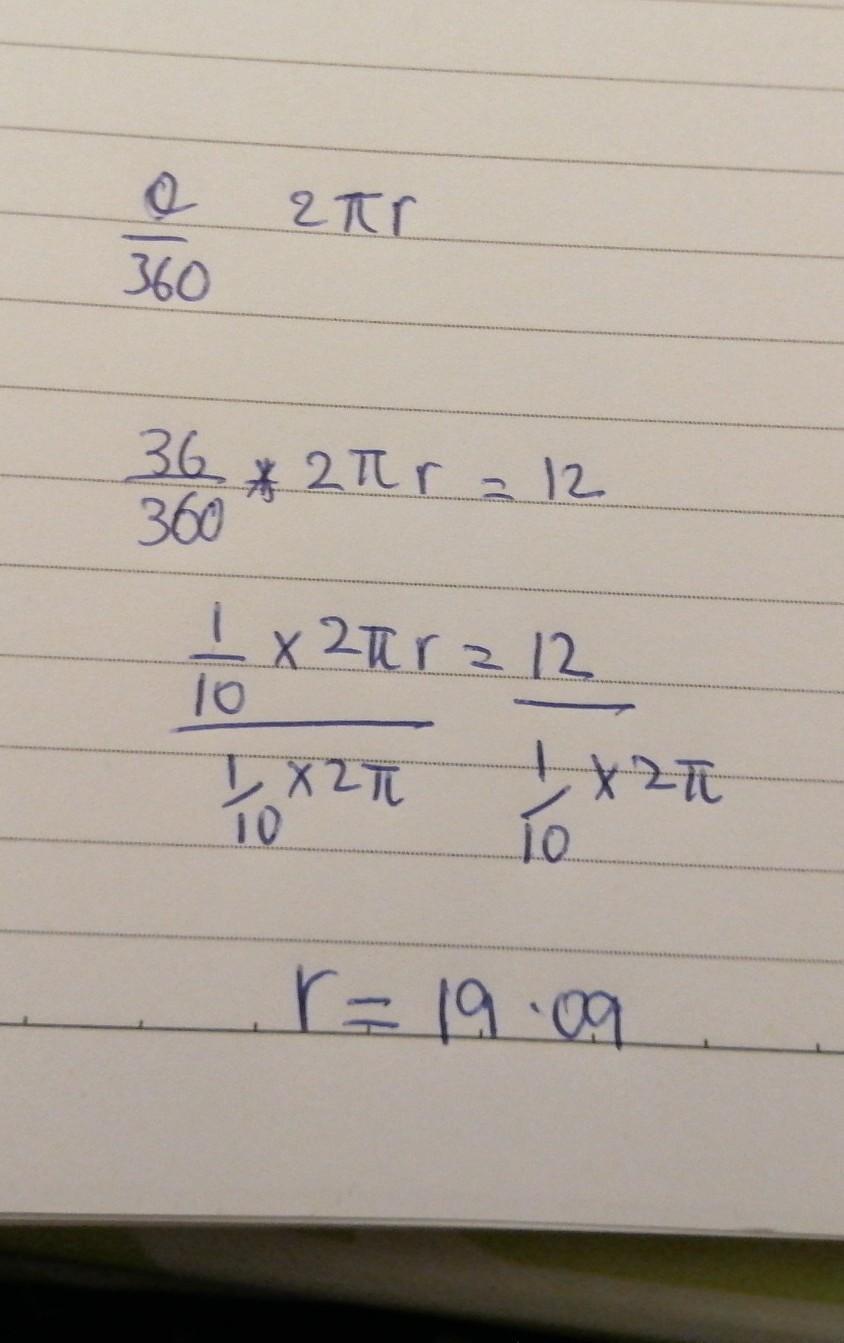 θ/360 2πr
36/360 * 2πr = 12
1/10 × 2πr = 12
1/10 × 2π 1/10 × 2π
r = 19.09